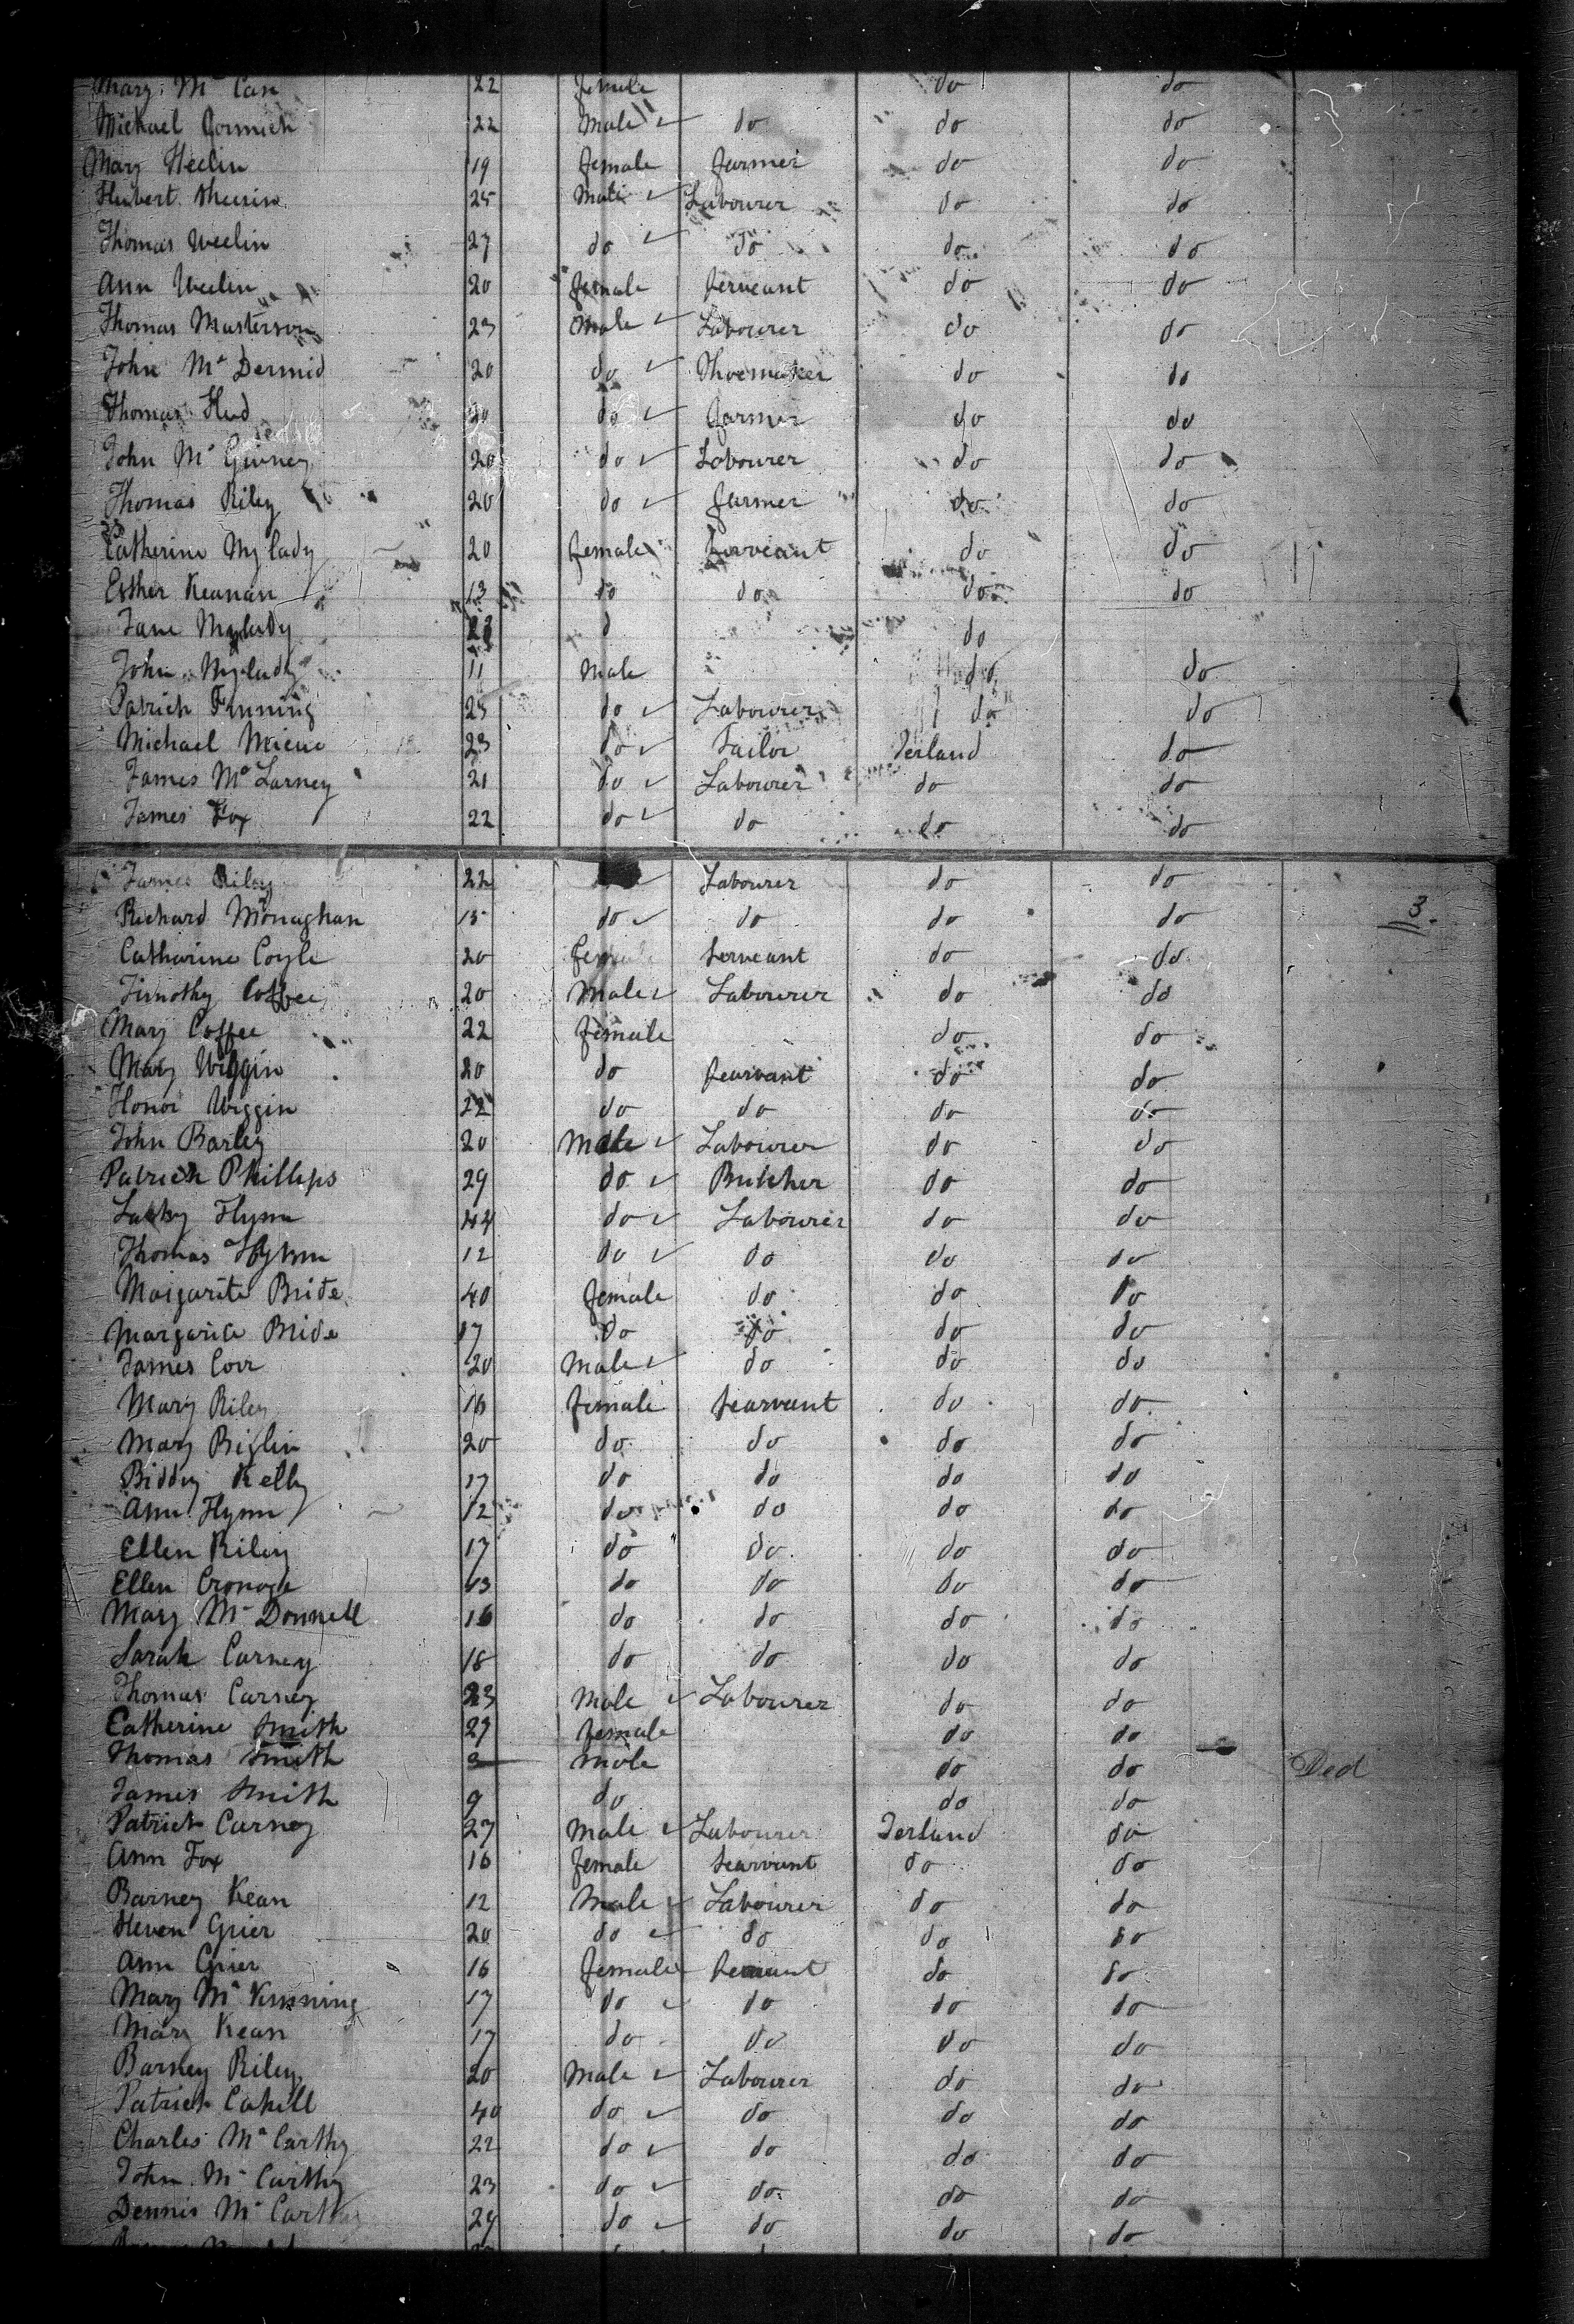 Mary Mc Can 22 female do do
Michael Cormick 22 Male do do do
Mary Heelin 19 female farmer do do
Hubert 25 Male Labourer do do
Thomas Weelin 27 do do do do
Ann Weelin 20 female serveant do do
Thomas Masterson 23 Male Labourer do do
John Mc Dermid 20 do Shoemaker do do
Thomas 20 do farmer do do
John Mc Givney 20 do Labourer do do
Thomas Riley 20 do farmer do do
Catherine Mylady 20 female serveant do do
Esther Keanan 13 do do do do
Jane Mylady d do
John Mylady 11 Male do do
Patrick Finning 25 do Labourer do do
Michael 23 do Tailor Ierland do
James Mc Larney 21 do Labourer do do
James Fox 22 do do do do
James Riley 22 Labourer do do
Richard Monaghan 15 do do do do
3.
Catharine Coyle 20 female serveant do do
Timothy Coffee 20 Male Labourer do do
Mary Coffee 22 female do do
Mary Wiggin 20 do searvant do do
Honor Wiggin 22 do do do do
John Barley 20 Male Labourer do do
Patrick Phillips 29 do Butcher do do
Flynn 44 do Labourer do do
Thomas 12 do do do do
Maigarite Bride 40 female do do do
Margarite Bride 17 do do do do
James Corr 20 Male do do do
Mary Riley 16 female searvant do do
Mary Biglin 20 do do do do
Biddy Kelly 17 do do do do
Ann Flynn 12 do do do do
Ellen Riley 17 do do do do
Ellen 13 do do do do
Mary Mc Donnell 16 do do do do
Sarah Carney 18 do do do do
Thomas Carney 23 Male Labourer do do
Catherine Smith 27 female do do
Thomas Smith 3 Male do do Ded
James Smith 9 do do do
Patrick Carney 27 Male Labourer Ierland do
Ann Fox 16 female searvant do do
Barney Kean 12 Male Labourer do do
Steven Grier 20 do do do do
Ann Grier 16 female do do
Mary Mc Kinning 17 do do do do
Mary Kean 17 do do do do
Barney Riley 20 Male Labourer do do
Patrick Cahill 40 do do do do
Charles Mc Carthy 22 do do do do
John Mc Carthy 23 do do do do
Dennis Mc Carthy 29 do do do do